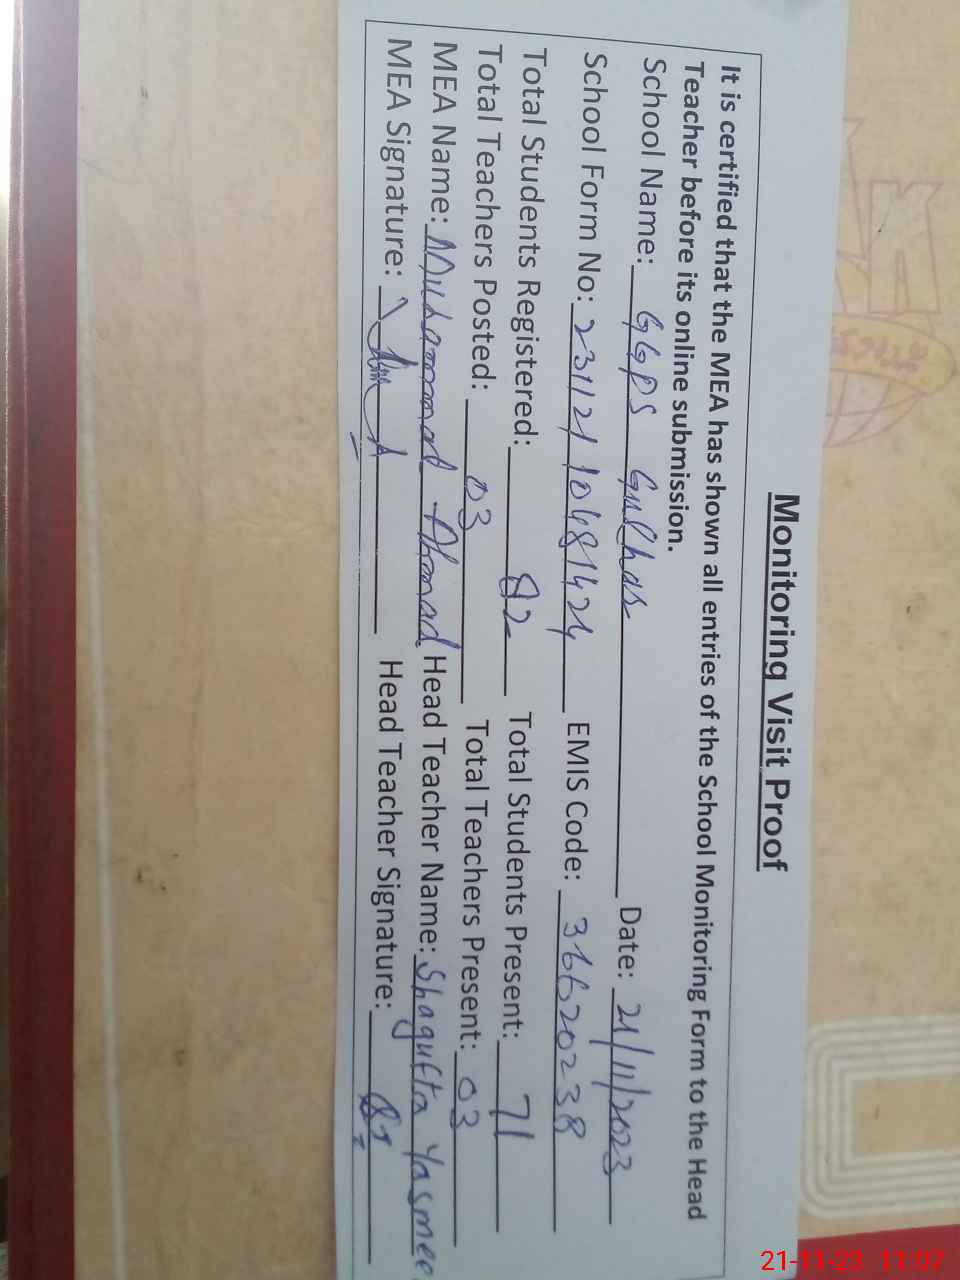 Monitoring Visit Proof
It is certified that the MEA has shown all entries of the School Monitoring Form to the Head
Teacher before its online submission.
School Name: GGPS Gulhds Date: 21/11/2023
School Form No: 231121 10481424 EMIS Code: 36620238
Total Students Registered: 82 Total Students Present: 71
Total Teachers Posted: 03 Total Teachers Present: 03
MEA Name: Muhammad Ahmad Head Teacher Name: Shagufta Yasmee
MEA Signature: Head Teacher Signature:
21-11-23 11:07